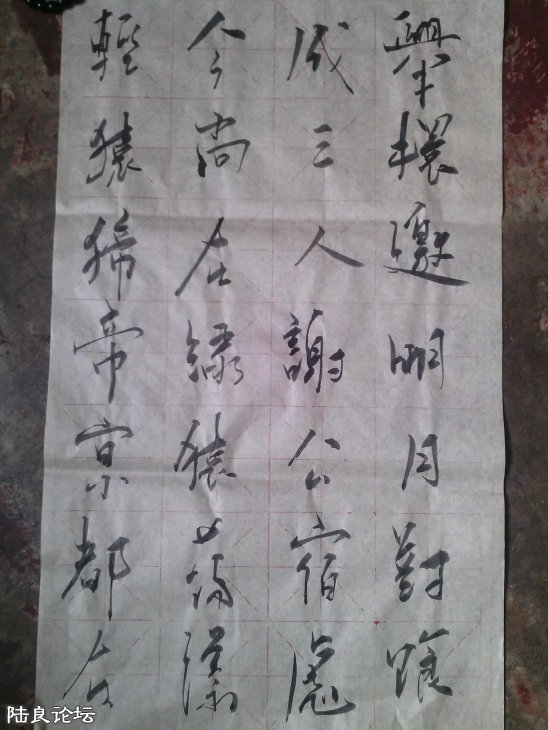 舉邀明月對
成三人謝公宿處
今尚在綠猿蕩漾
輕猿帝京都在
陆良论坛